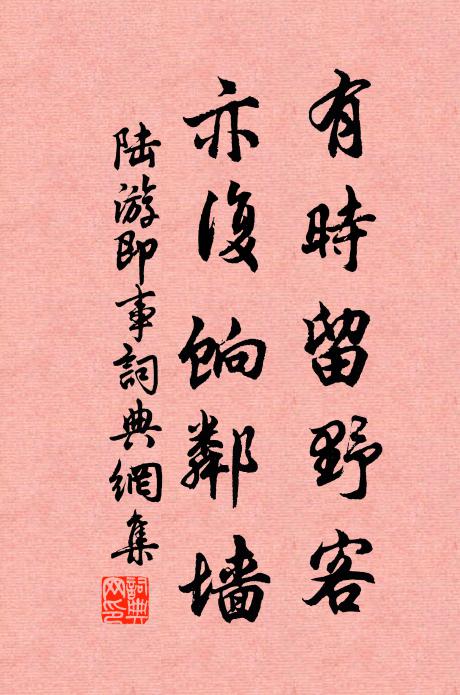 有時留野客
亦復餉鄰墻
陸游即事詞典網集
詞典網印